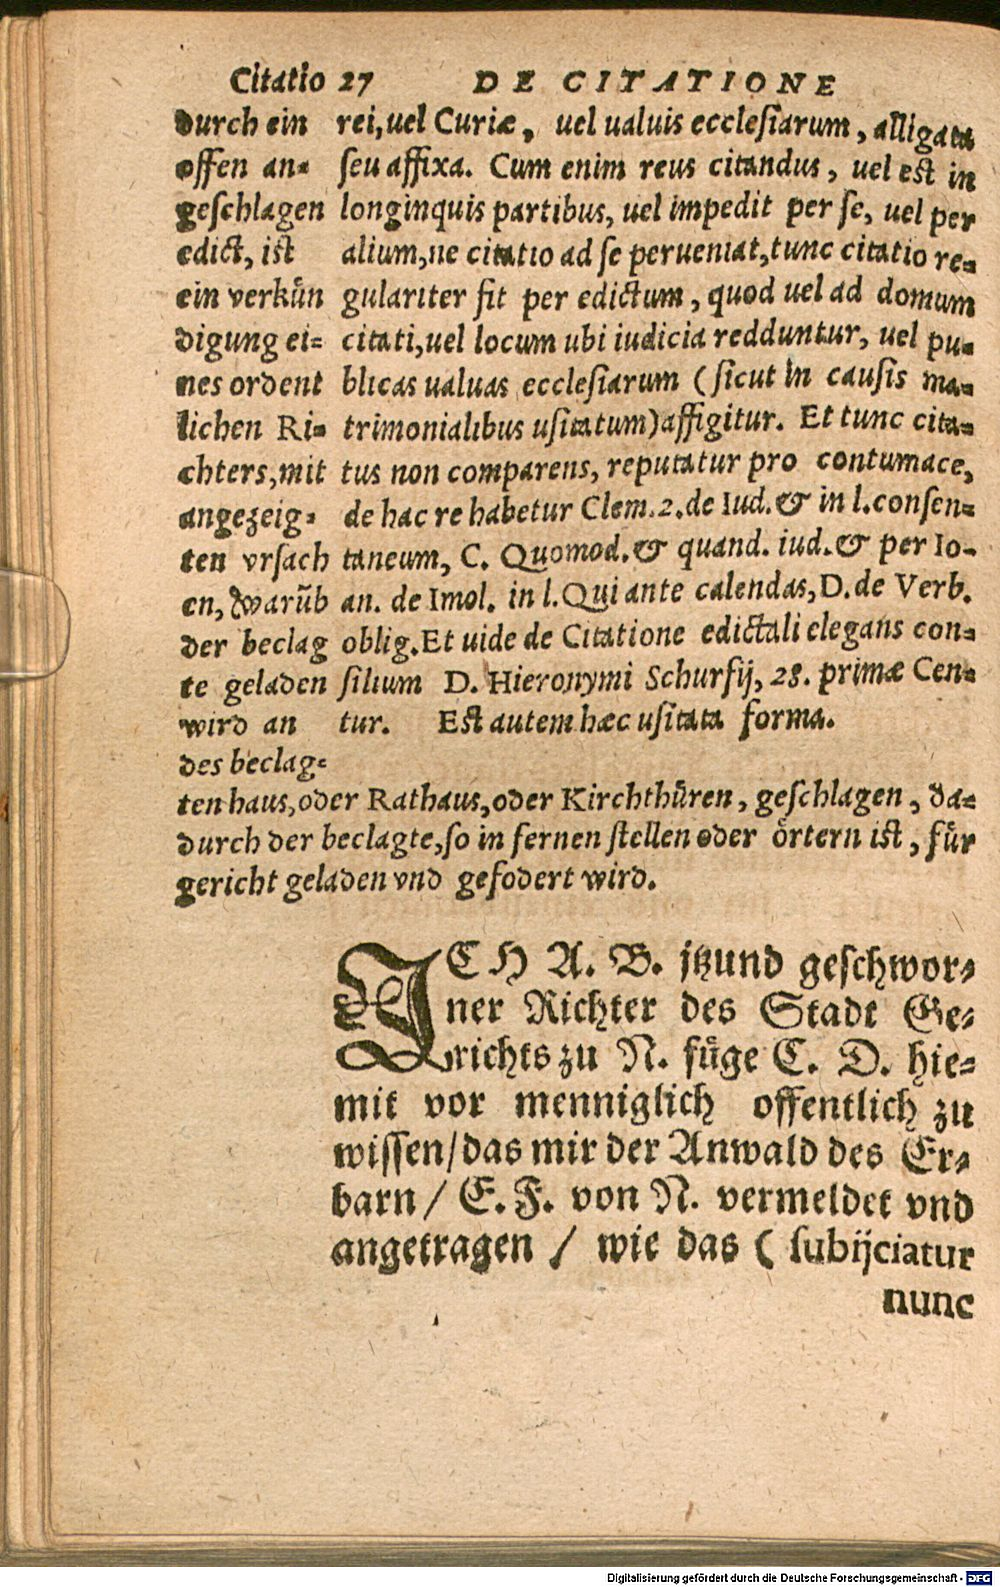 DE CITATIONE
Citatio 27
durch ein
offen an-
geſchlagen
edict, iſt
ein verkün
digung ei-
nes ordent
lichen Ri-
chters, mit
angezeig-
ten vrſach
en, warūb
der beclag
te geladen
wird an
des beclag-
ten haus, oder Rathaus, oder Kirchthüren, geſchlagen, da-
durch der beclagte, ſo in fernen ſtellen oder örtern iſt, für
gericht geladen vnd gefodert wird.
rei, uel Curiæ, uel ualuis eccleſiarum, alligata
ſeu affixa. Cum enim reus citandus, uel eſt in
longinquis partibus, uel impedit per ſe, uel per
alium, ne citatio ad ſe perueniat, tunc citatio re-
gulariter fit per edictum, quod uel ad domum
citati, uel locum ubi iudicia redduntur, uel pu-
blicas ualuas eccleſiarum (ſicut in cauſis ma-
trimonialibus uſitatum) affigitur. Et tunc cita-
tus non comparens, reputatur pro contumace,
de hac re habetur Clem. 2. de Iud. & in l. conſen-
taneum, C. Quomod. & quand. iud. & per Io-
an. de Imol. in l. Qui ante calendas, D. de Verb.
oblig. Et uide de Citatione edictali elegans con-
ſilium D. Hieronymi Schurfij, 28. primæ Cen-
tur. Eſt autem hæc uſitata forma.
ICH A. B. jtzund geſchwor-
ner Richter des Stadt Ge-
richts zu N. füge C. D. hie-
mit vor menniglich offentlich zu
wiſſen/ das mir der Anwald des Er-
barn/ E. F. von N. vermeldet vnd
angetragen/ wie das (ſubijciatur
nunc
Digitalisierung gefördert durch die Deutsche Forschungsgemeinschaft - DFG